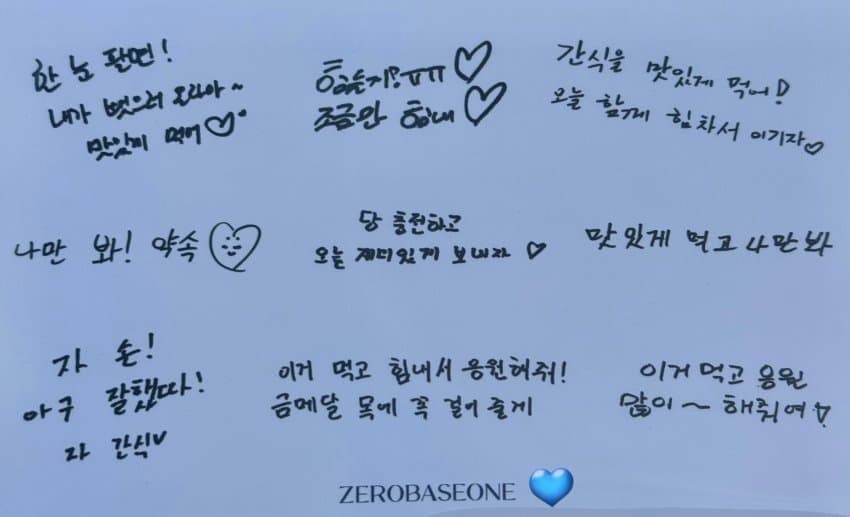 한 눈 팔면!
내가 벗으러 오라아~
맛있게 먹어♡
힘들지?ㅠㅠ♡
조금만 힘내♡
간식을 맛있게 먹어!
오늘 함께 힘차서 이기자♡
나만 봐! 약속♡
당 충전하고
오늘 재미있게 보내자 ♡
맛있게 먹고 나만봐
자 손!
아구 잘했따!
자 간식♡
이거 먹고 힘내서 응원해줘!
금메달 목에 꼭 걸어 줄게
이거 먹고 응원
많이~ 해줘여♡
ZEROBASEONE 💙